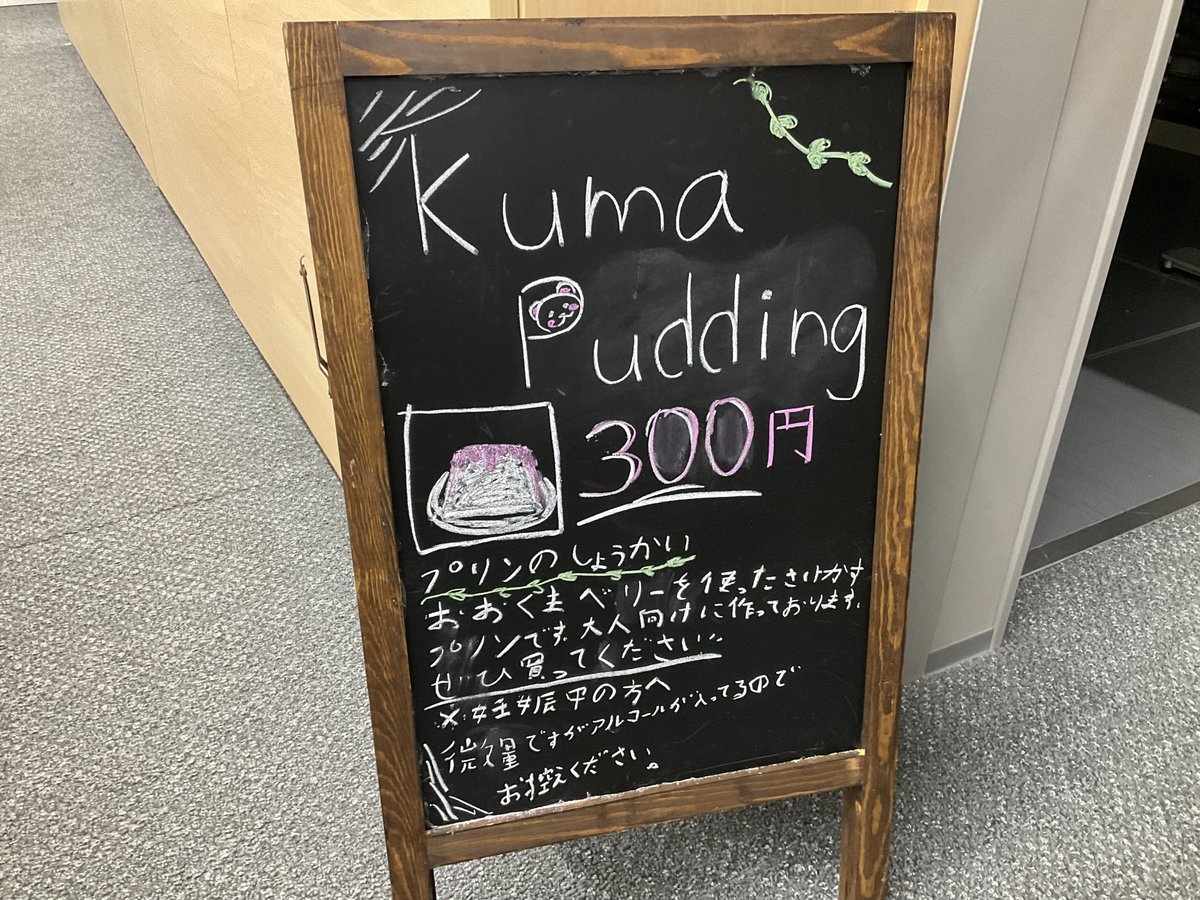 Kuma
Pudding
300円
プリンのしょうかい
おおくまベリーを使ったさけかす
プリンです。大人向けに作っております。
ぜひ買ってください
※妊娠中の方へ
微量ですがアルコールが入ってるので
お控えください。